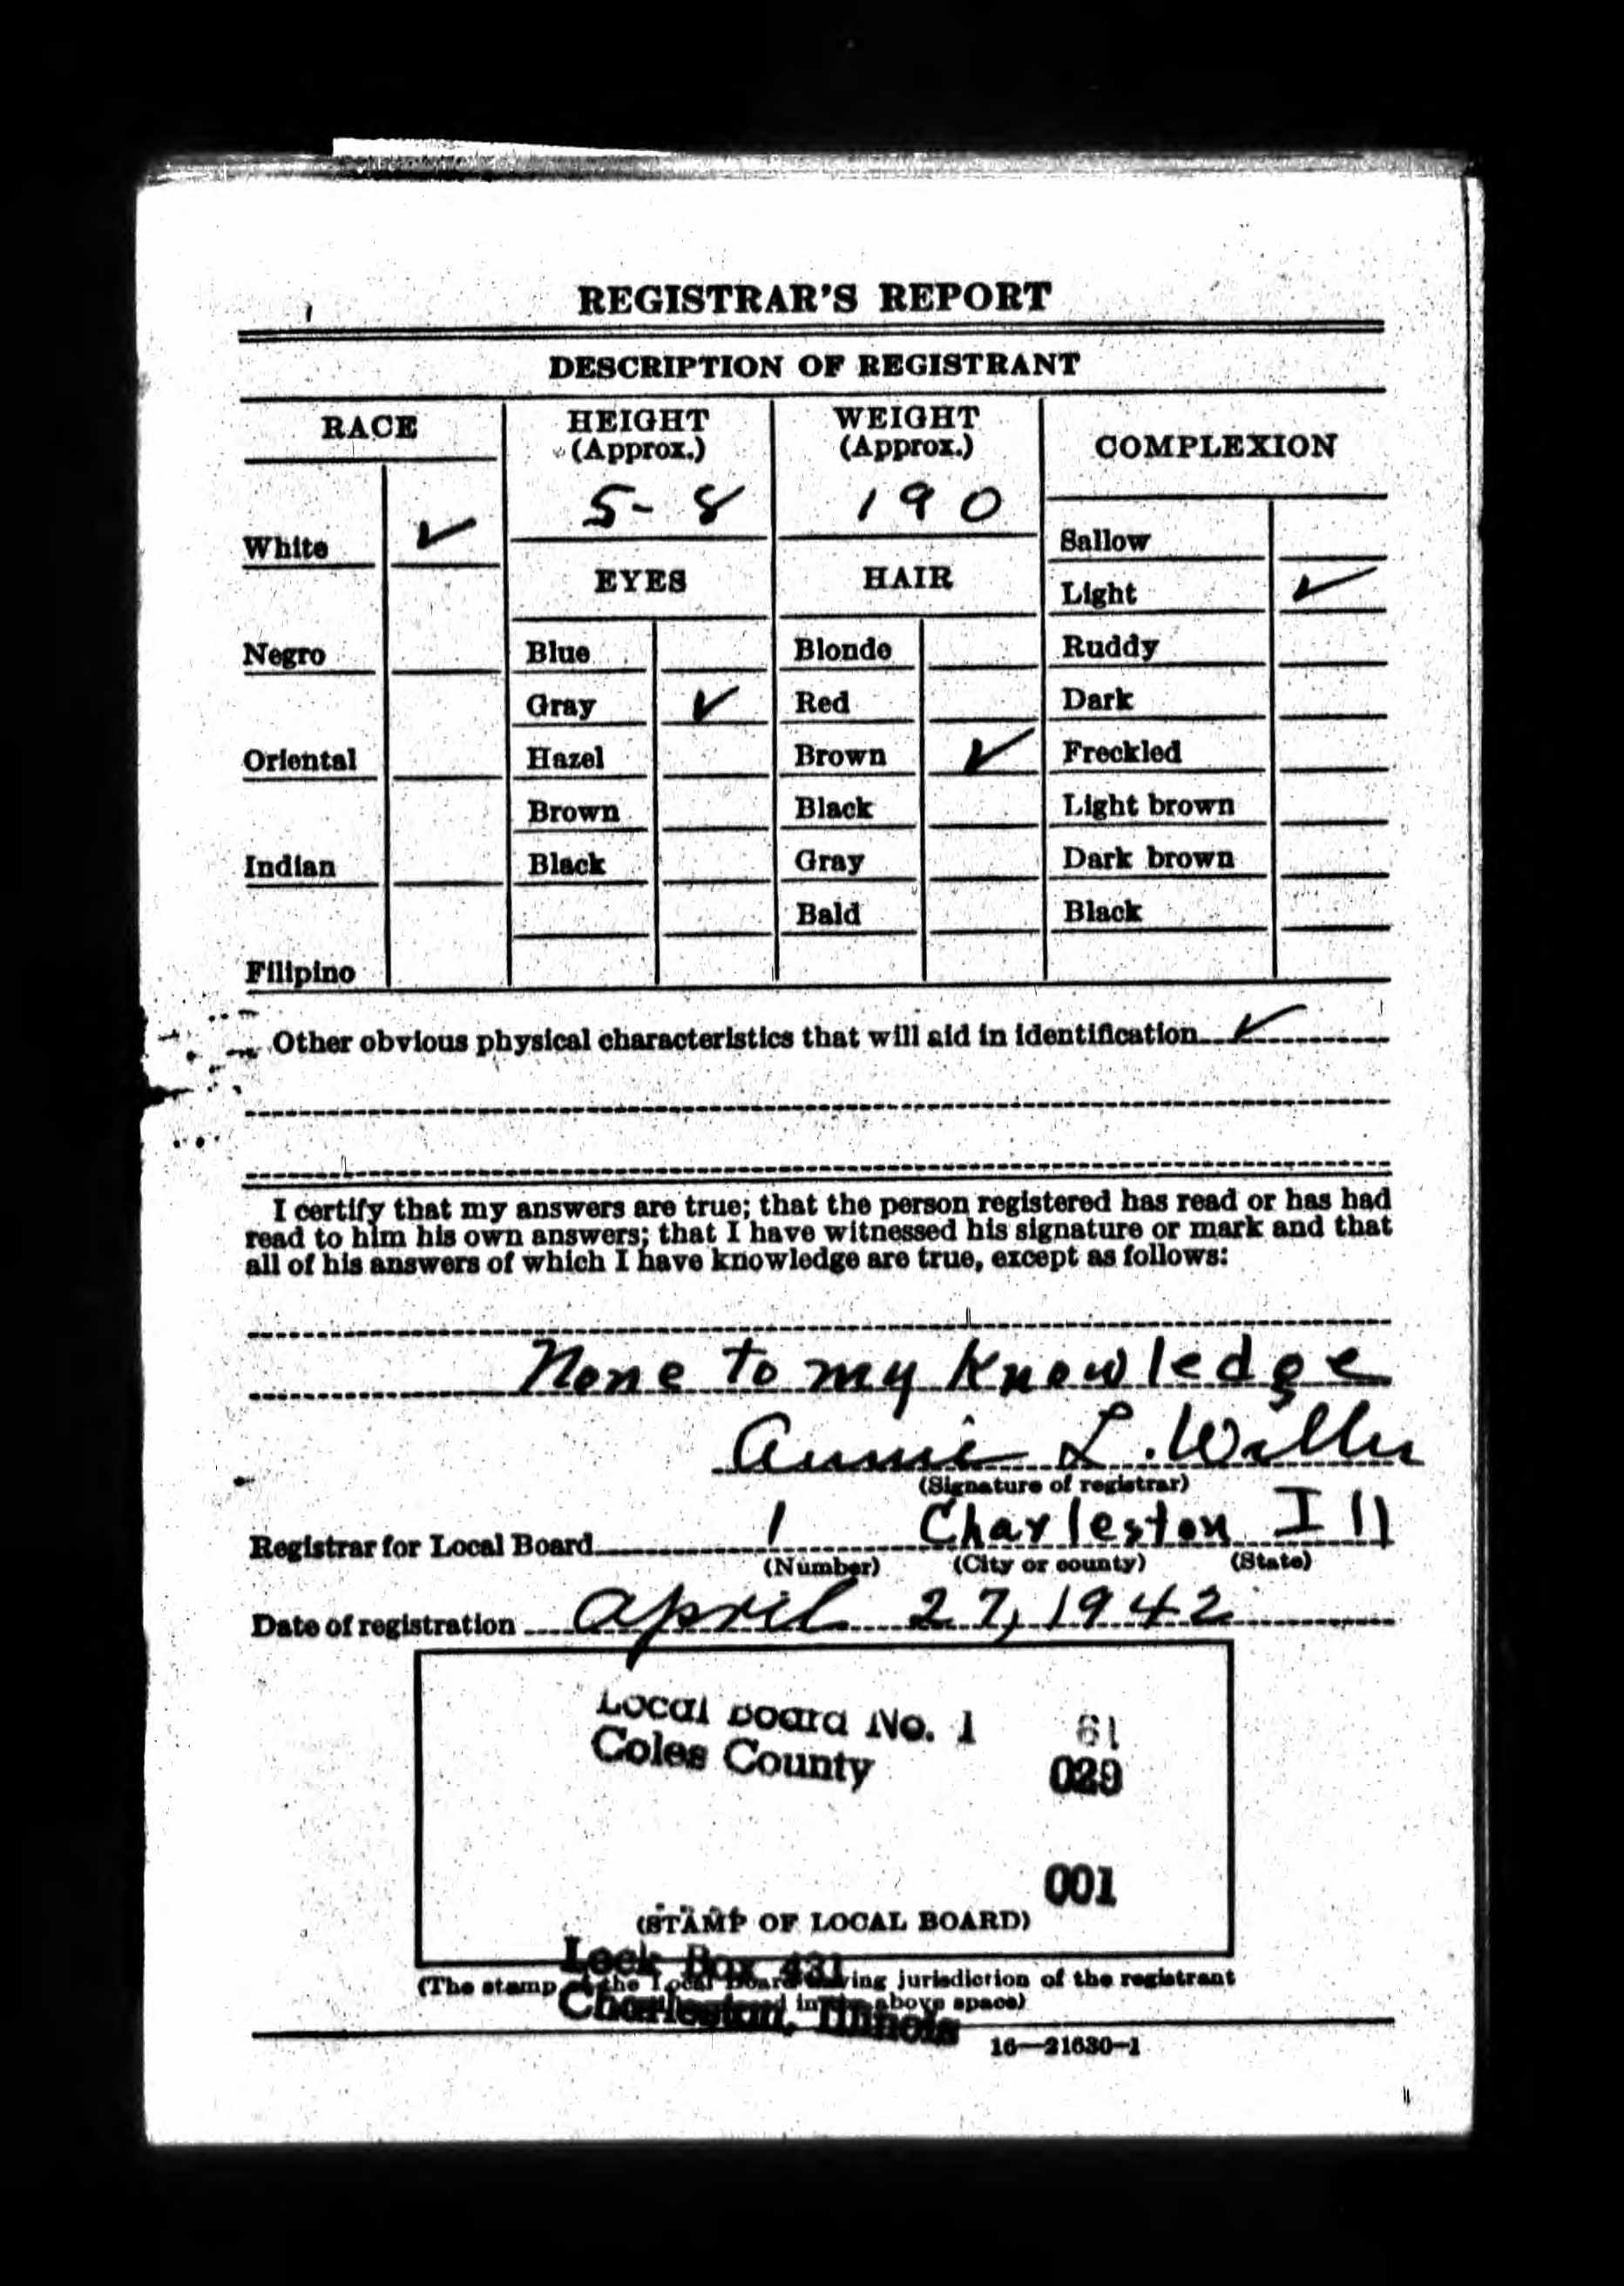 REGISTRAR'S REPORT
DESCRIPTION OF REGISTRANT
RACE
HEIGHT
(Approx.)
5-8
WEIGHT
(Approx.)
190
COMPLEXION
White ✓
Negro
Oriental
Indian
Filipino
EYES
Blue
Gray ✓
Hazel
Brown
Black
HAIR
Blonde
Red
Brown ✓
Black
Gray
Bald
Sallow
Light ✓
Ruddy
Dark
Freckled
Light brown
Dark brown
Black
Other obvious physical characteristics that will aid in identification ✓
I certify that my answers are true; that the person registered has read or has had
read to him his own answers; that I have witnessed his signature or mark and that
all of his answers of which I have knowledge are true, except as follows:
None to my knowledge
L.
(Signature of registrar)
Registrar for Local Board 1 Charleston Ill
(Number) (City or county) (State)
Date of registration April 27, 1942
Local Board No. 1 61
Coles County 029
001
(STAMP OF LOCAL BOARD)
Lock Box 431
(The stamp of the Local Board having jurisdiction of the registrant
Charleston, Illinois
in above space)
16—21630-1